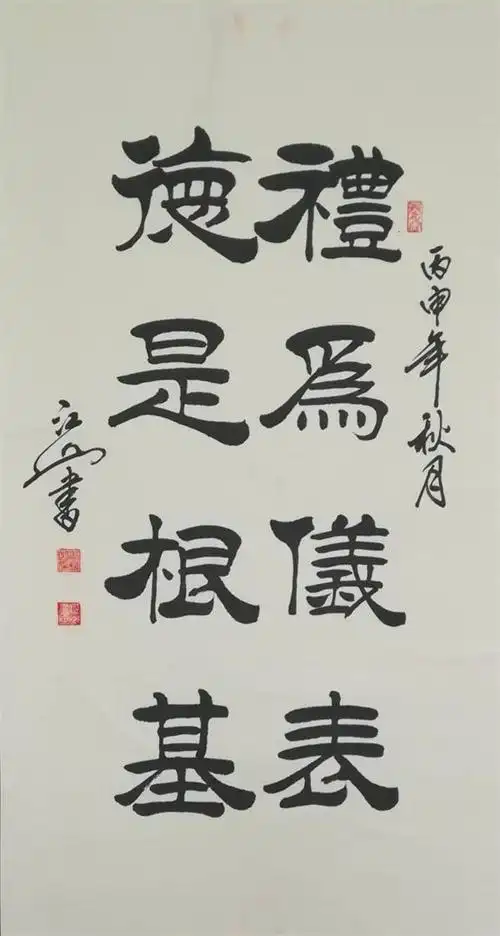 丙申年秋月
禮爲儀表
德是根基
江山書